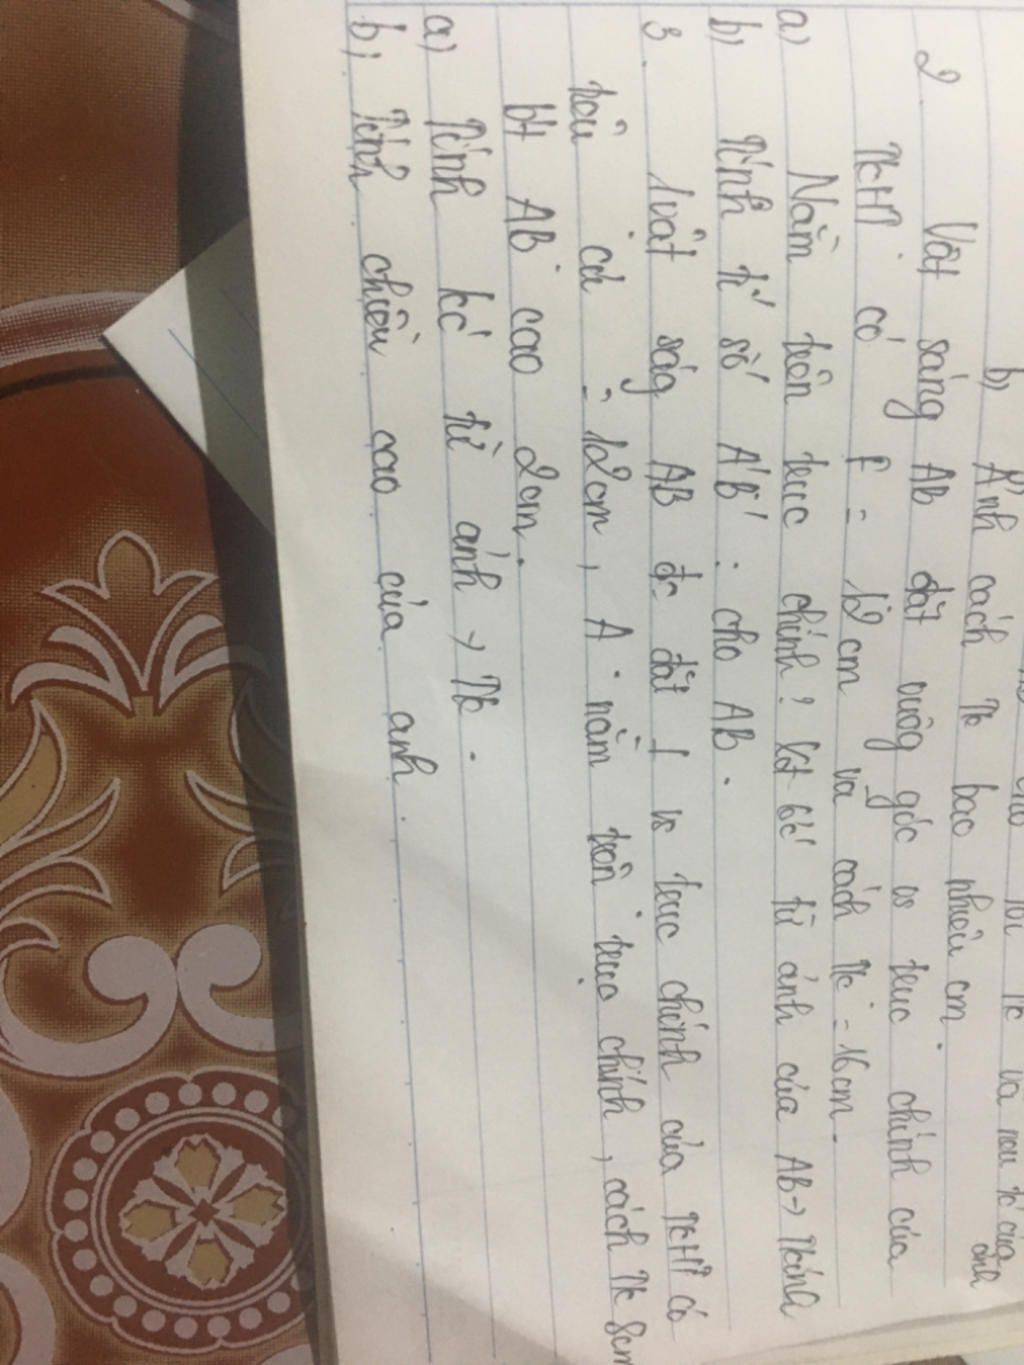 b) Ảnh cách TK bao nhiêu cm.
2. Vật sáng AB đặt vuôg góc vs trục chính của
TKHT có f = 12cm và cách TK = 16cm.
a) Nằm trên trục chính? Xđ k/c từ ảnh của AB → Tkính
b) Tính tỉ số A'B' : cho AB.
3. 1 vật ság AB đc đặt ⊥ vs trục chính của TKHT có
tiêu cư = 12cm, A nằm trên trục chính, cách TK 8cm
bt AB cao 2cm.
a) Tính k/c từ ảnh → TK.
b) Tính chiều cao của ảnh.